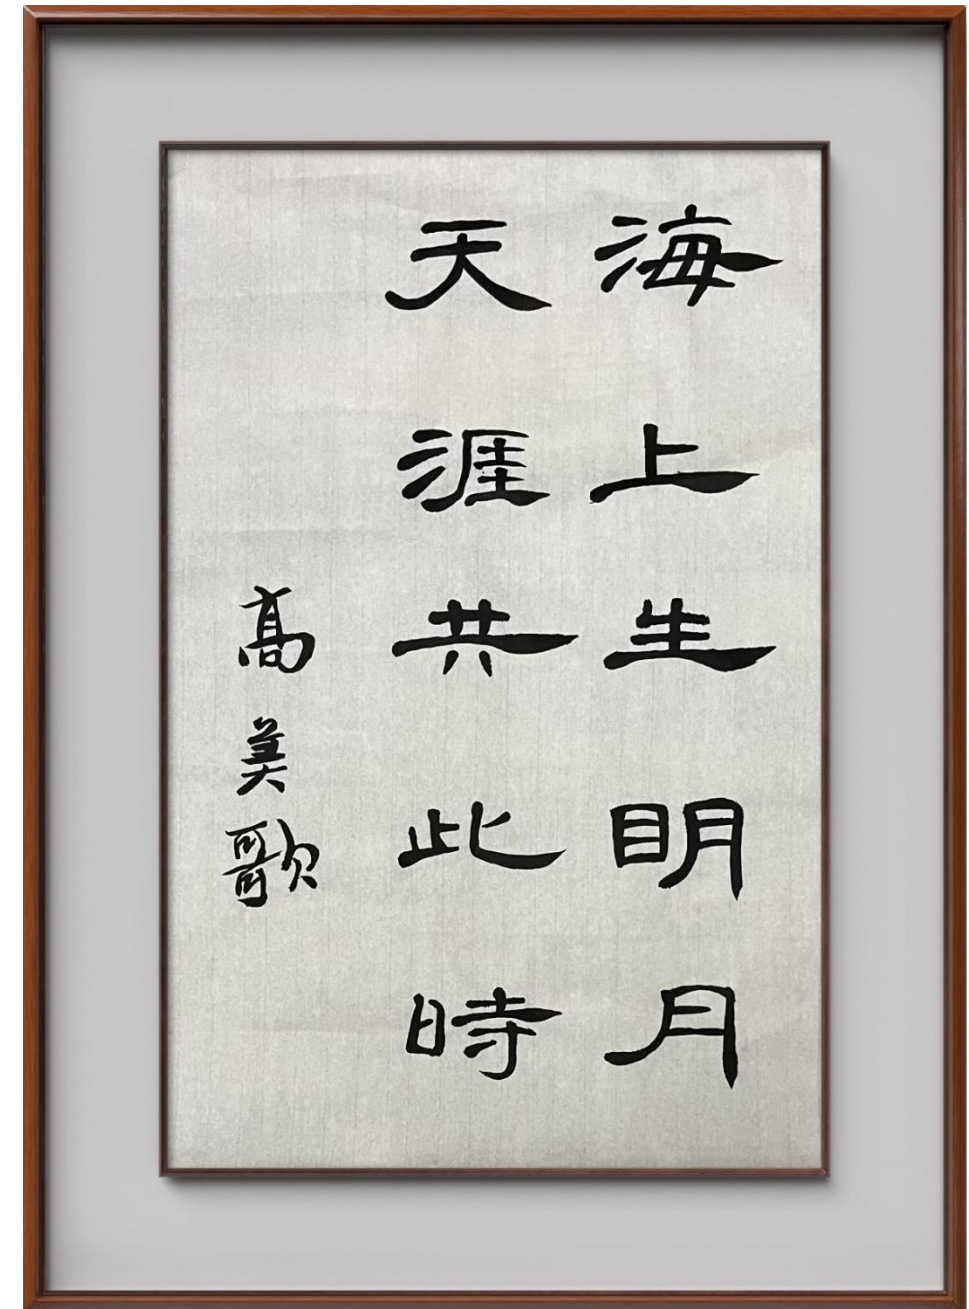 海上生明月
天涯共此時
高美歌